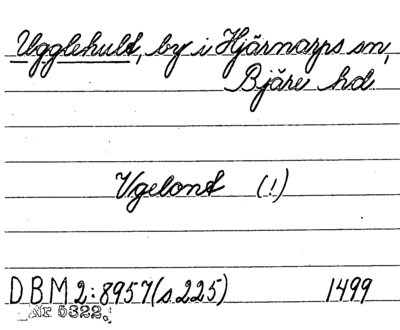 Ugglehult, by i Hjärnarps sn,
Bjäre hd.
Vgelont (!)
DBM 2:8957 (s 225) 1499
Nr 5322.